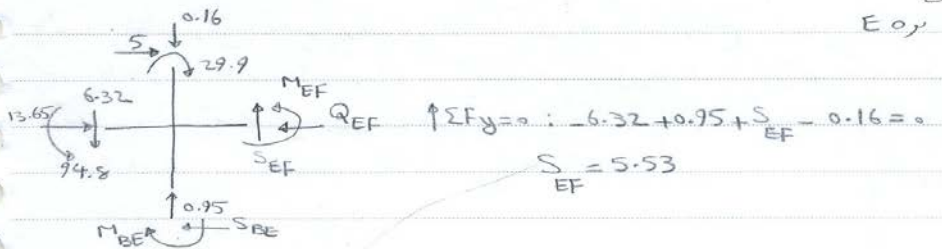 گره E
0.16
5
29.9
M_EF
6.32
13.65
Q_EF
↑ΣFy=0 : -6.32 +0.95 + S_EF - 0.16 = 0
94.8
S_EF
S_EF = 5.53
0.95
M_BE
S_BE